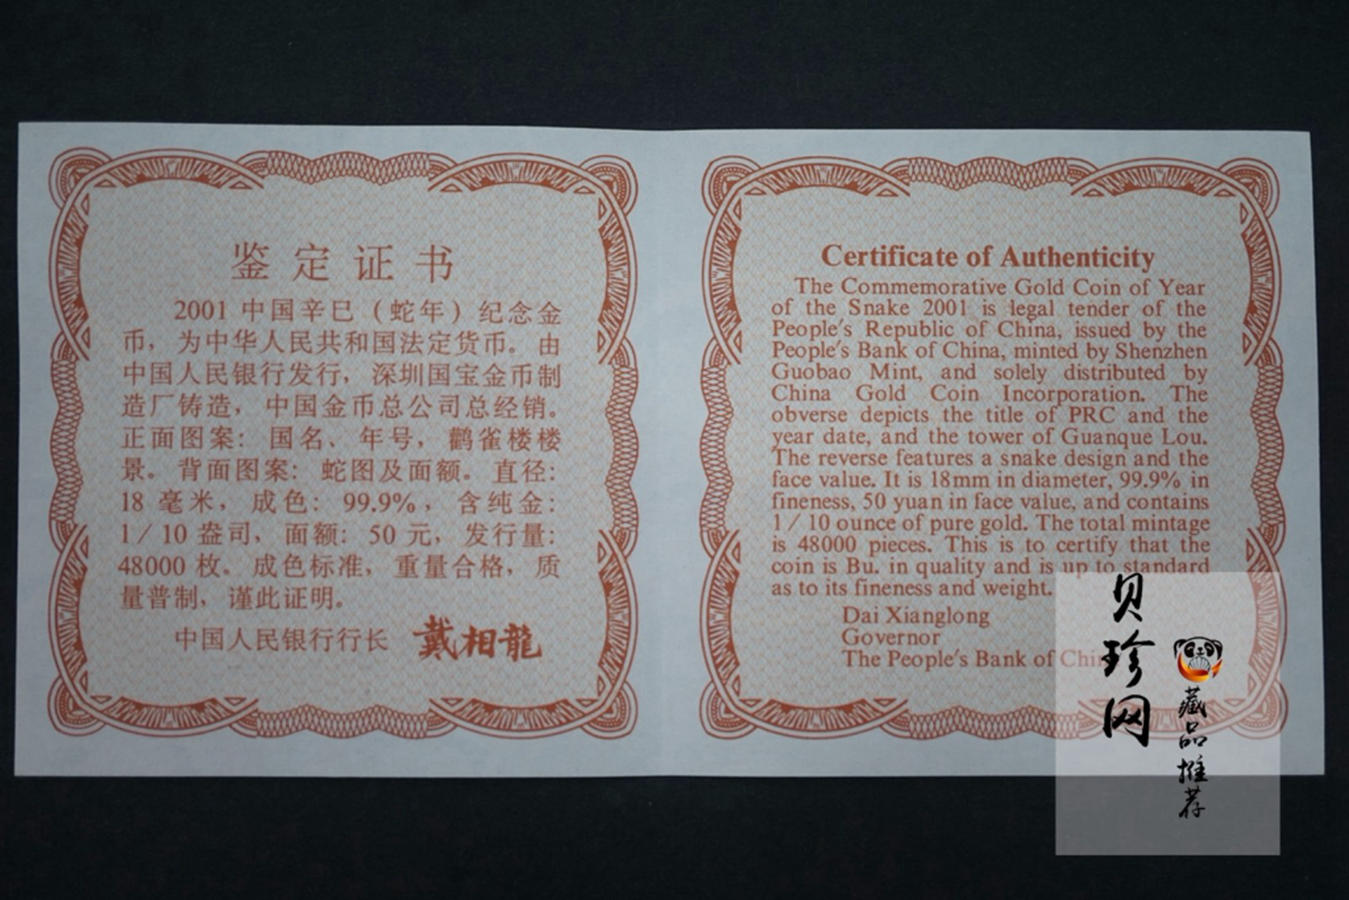 鉴定证书
2001 中国辛巳（蛇年）纪念金
币，为中华人民共和国法定货币。由
中国人民银行发行，深圳国宝金币制
造厂铸造，中国金币总公司总经销。
正面图案：国名、年号，鹳雀楼楼
景。背面图案：蛇图及面额。直径：
18 毫米，成色：99.9%，含纯金：
1/10 盎司，面额：50 元，发行量：
48000 枚。成色标准，重量合格，质
量普制，谨此证明。
中国人民银行行长 戴相龍
Certificate of Authenticity
The Commemorative Gold Coin of Year
of the Snake 2001 is legal tender of the
People's Republic of China, issued by the
People's Bank of China, minted by Shenzhen
Guobao Mint, and solely distributed by
China Gold Coin Incorporation. The
obverse depicts the title of PRC and the
year date, and the tower of Guanque Lou.
The reverse features a snake design and the
face value. It is 18mm in diameter, 99.9% in
fineness, 50 yuan in face value, and contains
1/10 ounce of pure gold. The total mintage
is 48000 pieces. This is to certify that the
coin is Bu. in quality and is up to standard
as to its fineness and weight.
Dai Xianglong
Governor
The People's Bank of China
贝珍网
藏品推荐